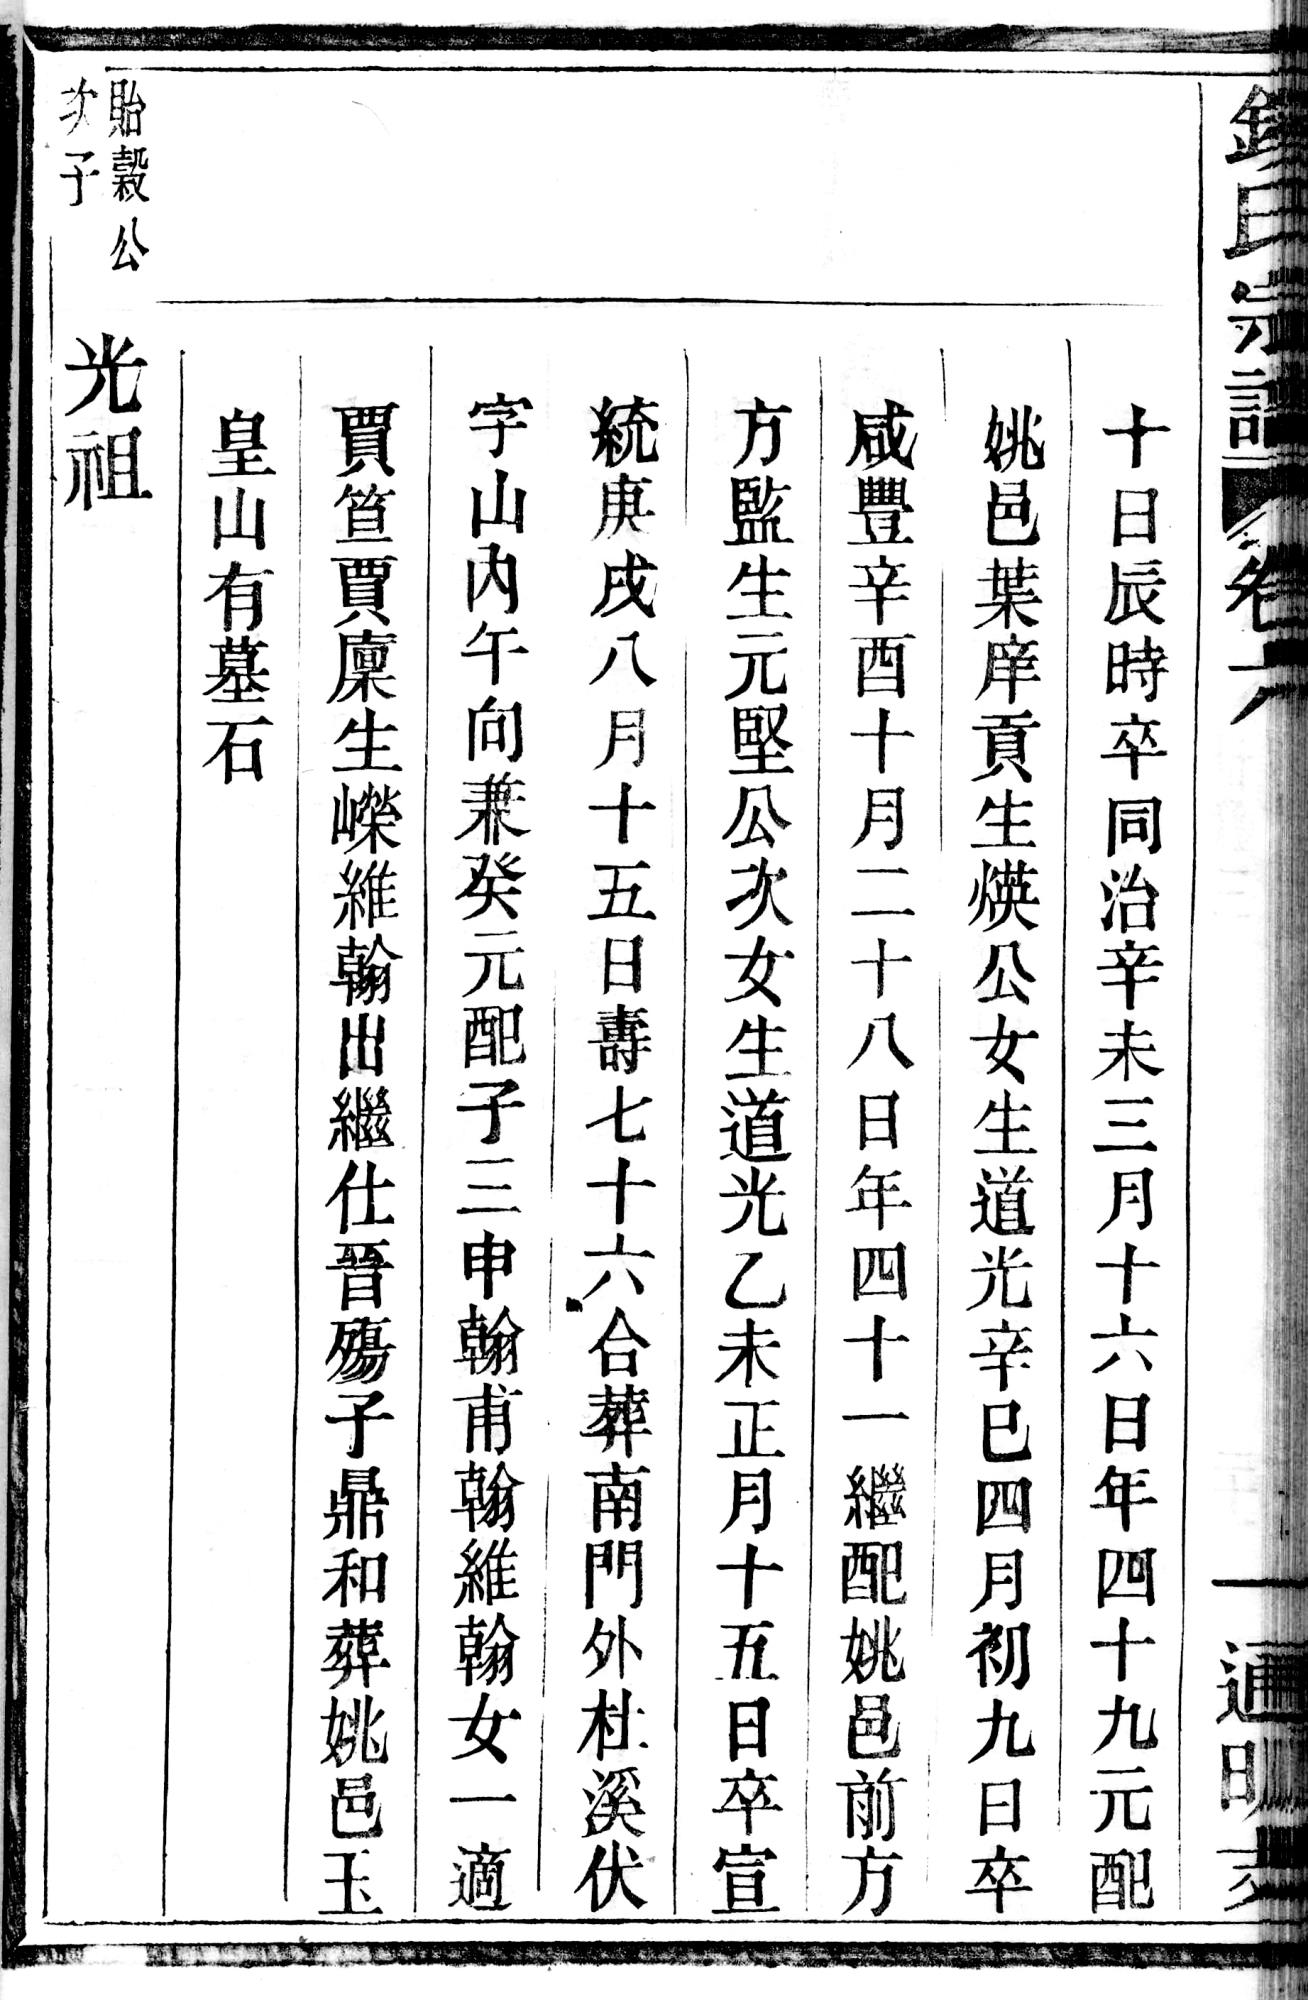 氏宗譜 卷六 一 通明支
十日辰時卒同治辛未三月十六日年四十九元配
姚邑葉庠貢生煐公女生道光辛巳四月初九日卒
咸豐辛酉十月二十八日年四十一繼配姚邑前方
方監生元堅公次女生道光乙未正月十五日卒宣
統庚戌八月十五日壽七十六合葬南門外杜溪伏
字山內午向兼癸元配子三申翰甫翰維翰女一適
賈笪賈廩生嶸維翰出繼仕晉殤子鼎和葬姚邑玉
皇山有墓石
貽穀公
次子
光祖